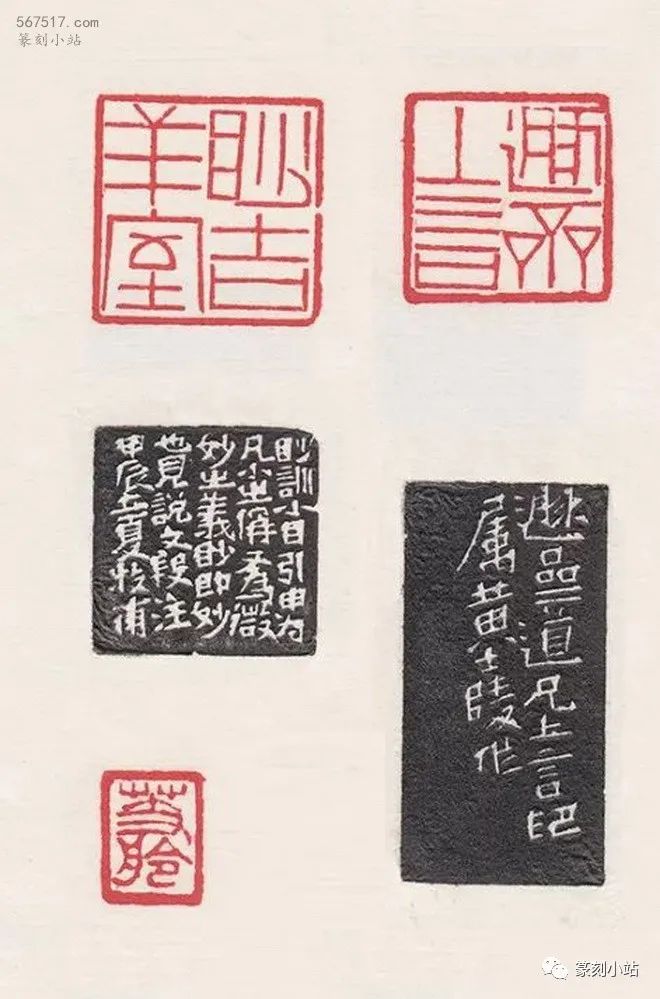 567517.com
篆刻小站
眇吉
羊室
上言
眇訓小目引申为
凡小之偁
妙之義眇即妙
也見說文段注
甲辰立夏牧甫
道兄上言印
属黄士陵作
聆
篆刻小站